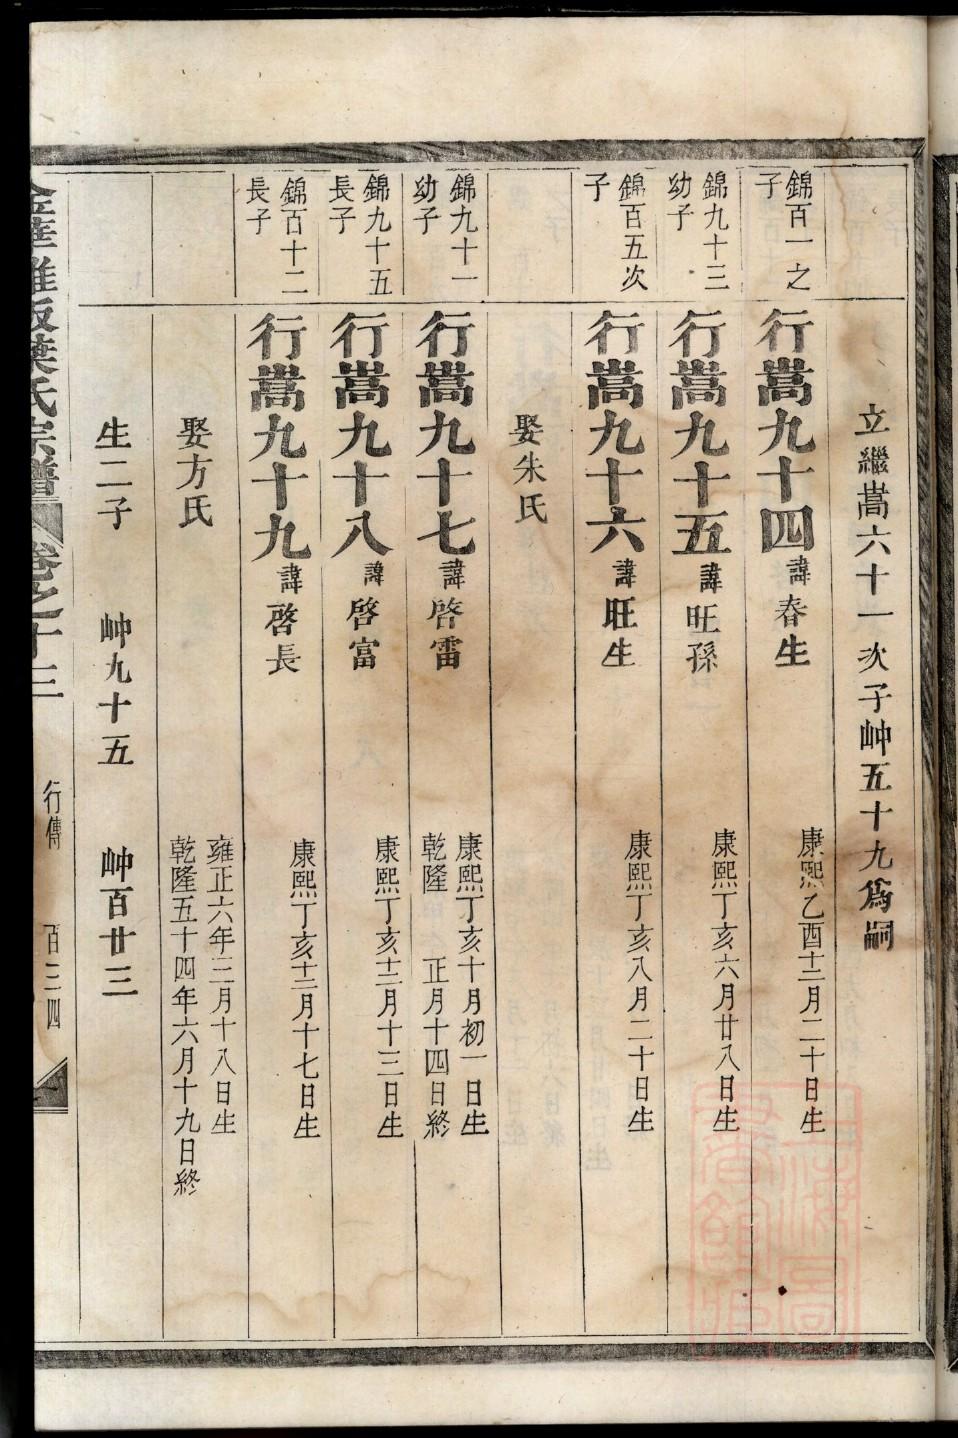 立繼嵩六十一次子岫五十九爲嗣
錦百一之
子
行嵩九十四諱春生
康熙乙酉十二月二十日生
錦九十三
幼子
行嵩九十五諱旺孫
康熙丁亥六月廿八日生
錦百五次
子
行嵩九十六諱旺生
康熙丁亥八月二十日生
娶朱氏
錦九十一
幼子
行嵩九十七諱啓雷
康熙丁亥十月初一日生
乾隆 正月十四日終
錦九十五
長子
行嵩九十八諱啓富
康熙丁亥十二月十三日生
錦百十二
長子
行嵩九十九諱啓長
康熙丁亥十二月十七日生
娶方氏
雍正六年三月十八日生
乾隆五十四年六月十九日終
生二子 岫九十五 岫百廿三
葉氏宗譜 卷之十三 行傳 百三四